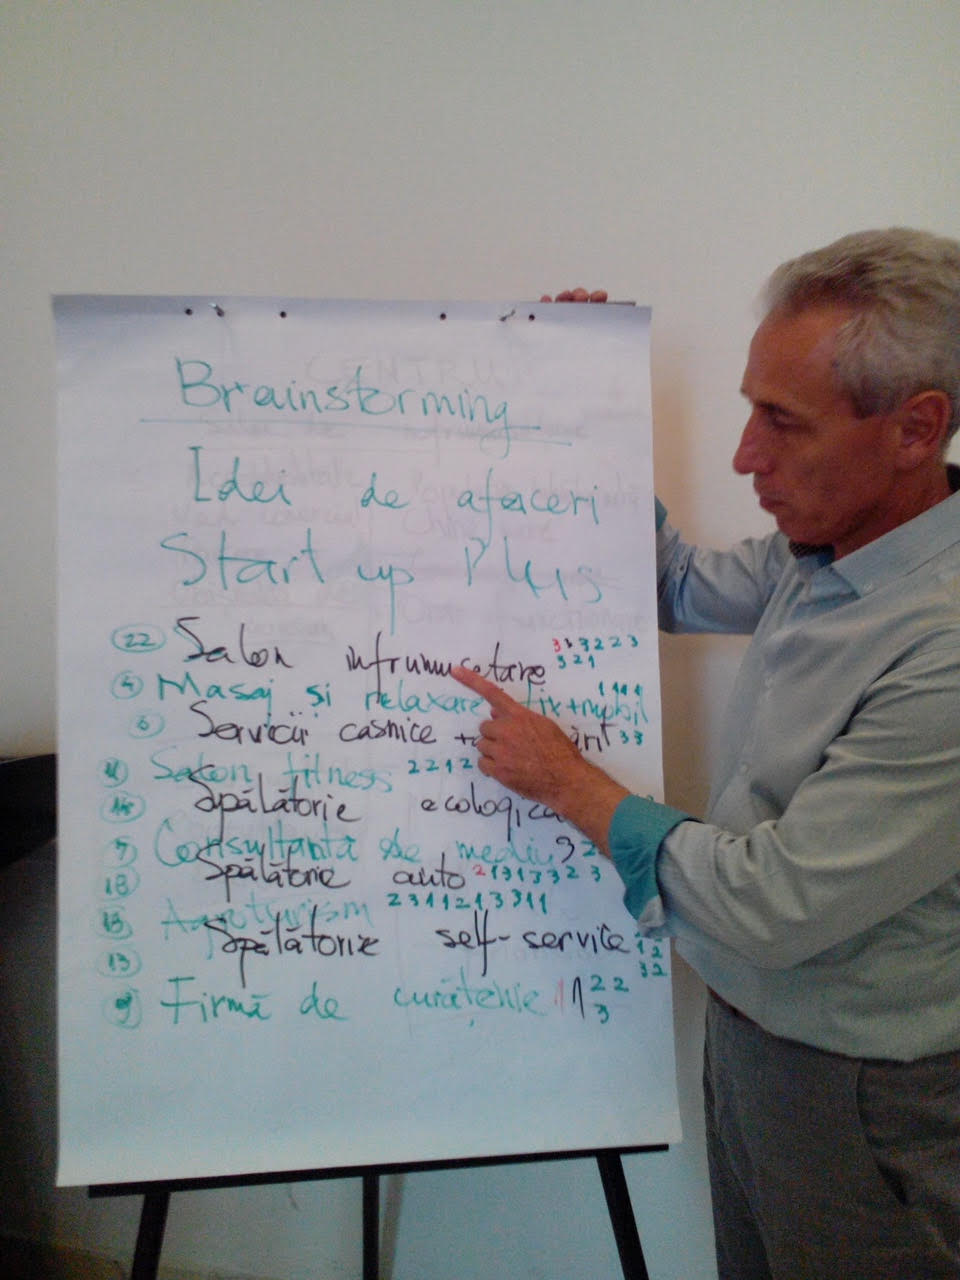 Brainstorming
Idei de afaceri
Start up Plus
22 Salon infrumusetare 3 3 2 2 3
3 2 1
4 Masaj și relaxare fix+mobil 1 1 1 1
6 Servicii casnice 3 3
Salon fitness 2 2 1 2
Spălătorie ecologica
7 Consultanță de mediu 3 2
18 Spălătorie auto 2 1 3 1 3 3 2 3
15 Agroturism 2 3 1 1 2 1 3 3 1 1
13 Spălătorie self-service 1 2
3 2
9 Firmă de curățenie 1 1 2 2
3